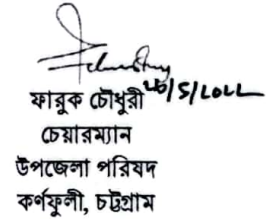 ফারুক চৌধুরী
চেয়ারম্যান
উপজেলা পরিষদ
কর্ণফুলী, চট্টগ্রাম